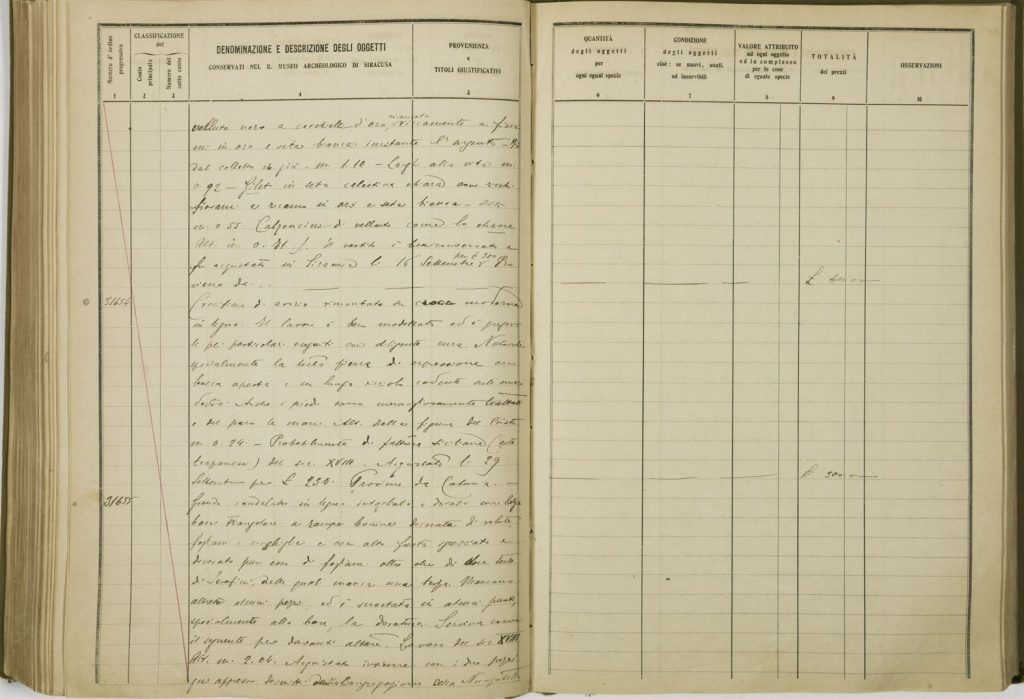 Numero d'ordine progressivo
CLASSIFICAZIONE del
Conto principale
Numero del sotto conto
DENOMINAZIONE E DESCRIZIONE DEGLI OGGETTI
CONSERVATI NEL R. MUSEO ARCHEOLOGICO DI SIRACUSA
PROVENIENZA
e
TITOLI GIUSTIFICATIVI
1 2 3 4 5
velluto nero a cerchietti d'oro, ricamato riccamente a fiora
mi in oro e seta bianca imitante l'argento
dal colletto in giù m. 1.10 – Largh. alla vita m.
0.92 – Gilet in seta celestina chiara con ricchi
fiorami a ricamo in oro e seta bianca – Alt.
m. 0.55. Calzoncino di velluto come lo
Alt. m. 0.71. Il vestito è ben conservato e
fu acquistato in Siracusa li 16 Settembre per £ 300 Pro
viene da...
31654
Crocifisso di avorio rimontato su croce moderna
in legno. Il lavoro è ben modellato ed è
le più particolari eseguiti con diligente cura. Notevole
specialmente la testa piena di espressione con
bocca aperta e un lungo ricciolo cadente sull'omero
destro. Anche i piedi sono meravigliosamente trattati
e del paro le mani. Alt. della figura del Cristo
m. 0.24. – Probabilmente di fattura siciliana (arte
trapanese) del sec. XVIII. Acquistato li 29
Settembre per £ 230. Proviene da Catania. –
31655
Grande candelabro in legno intagliato e dorato con larga
base triangolare a zampe leonine decorata di volute,
fogliami, conchiglie e con alto fusto
decorato pur esso di fogliami oltre che di due teste
di serafini, delle quali manca una terza. Mancano
altresì alcuni pezzi, ed è scrostata in alcuni punti,
specialmente alla base, la doratura. Serviva come
il seguente per davanti altare. Lavoro del sec. XVIII.
Alt. m. 2.04. Acquistato insieme con i due pezzi
qui appresso descritti dalla Congregazione della
QUANTITÀ
degli oggetti
per
ogni egual specie
CONDIZIONE
degli oggetti
cioè: se nuovi, usati,
od inservibili
VALORE ATTRIBUITO
ad ogni oggetto
ed in complesso
per le cose
di eguale specie
TOTALITÀ
dei prezzi
OSSERVAZIONI
6 7 8 9 10
£ 300